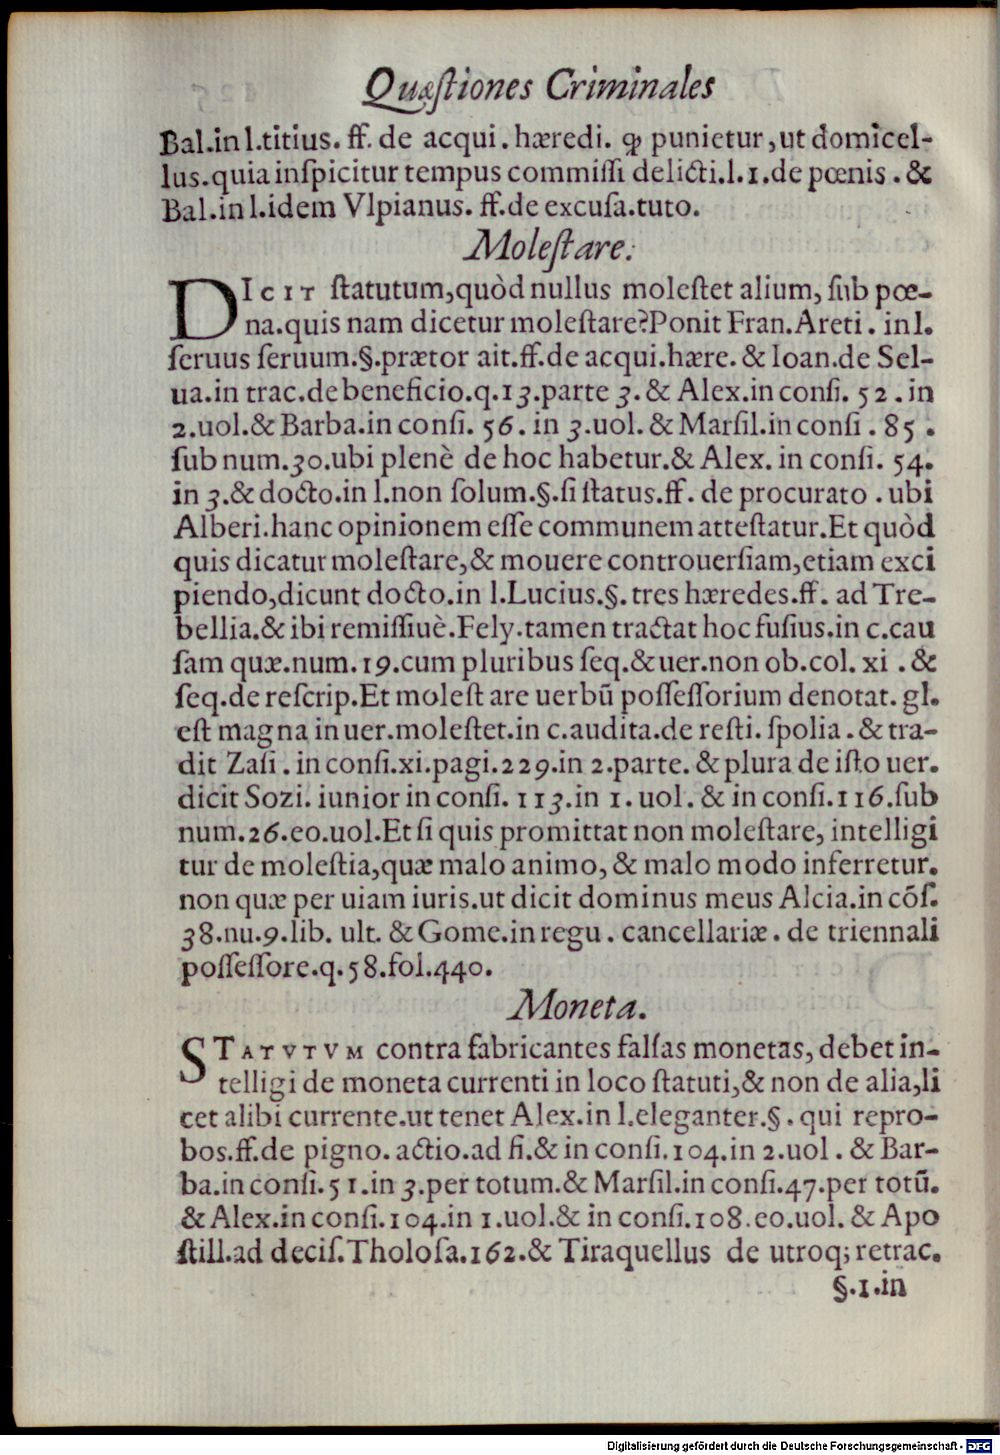 Quæſtiones Criminales
Bal.in l.titius. ff. de acqui. hæredi. ꝙ punietur, ut domicel-
lus.quia inſpicitur tempus commiſſi delicti.l.1.de pœnis. &
Bal.in l.idem Vlpianus. ff.de excuſa.tuto.
Moleſtare.
DICIT ſtatutum, quòd nullus moleſtet alium, ſub pœ-
na.quis nam dicetur moleſtare? Ponit Fran.Areti. in l.
ſeruus ſeruum.§.prætor ait.ff.de acqui.hære. & Ioan.de Sel-
ua.in trac.de beneficio.q.13.parte 3. & Alex.in conſi. 52. in
2.uol.& Barba.in conſi. 56. in 3.uol. & Marſil.in conſi. 85.
ſub num.30.ubi plenè de hoc habetur.& Alex. in conſi. 54.
in 3.& docto.in l.non ſolum.§.ſi ſtatus.ff. de procurato. ubi
Alberi.hanc opinionem eſſe communem atteſtatur.Et quòd
quis dicatur moleſtare, & mouere controuerſiam, etiam exci
piendo, dicunt docto.in l.Lucius.§. tres hæredes.ff. ad Tre-
bellia.& ibi remiſſiuè.Fely.tamen tractat hoc fuſius.in c.cau
ſam quæ.num.19.cum pluribus ſeq.& uer.non ob.col. xi. &
ſeq.de reſcrip.Et moleſtare uerbū poſſeſſorium denotat. gl.
eſt magna in uer.moleſtet.in c.audita.de reſti. ſpolia. & tra-
dit Zaſi. in conſi.xi.pagi.229.in 2.parte. & plura de iſto uer.
dicit Sozi. iunior in conſi. 113.in 1. uol. & in conſi.116.ſub
num.26.eo.uol.Et ſi quis promittat non moleſtare, intelligi
tur de moleſtia, quæ malo animo, & malo modo inferretur.
non quæ per uiam iuris.ut dicit dominus meus Alcia.in cōſ.
38.nu.9.lib. ult. & Gome.in regu. cancellariæ. de triennali
poſſeſſore.q.58.fol.440.
Moneta.
STATVTVM contra fabricantes falſas monetas, debet in-
telligi de moneta currenti in loco ſtatuti, & non de alia, li
cet alibi currente.ut tenet Alex.in l.eleganter.§. qui repro-
bos.ff.de pigno. actio.ad fi.& in conſi.104.in 2.uol. & Bar-
ba.in conſi.51.in 3.per totum.& Marſil.in conſi.47.per totū.
& Alex.in conſi.104.in 1.uol.& in conſi.108.eo.uol. & Apo
ſtill.ad deciſ.Tholoſa.162.& Tiraquellus de utroq; retrac.
§.1.in
Digitalisierung gefördert durch die Deutsche Forschungsgemeinschaft - DFG